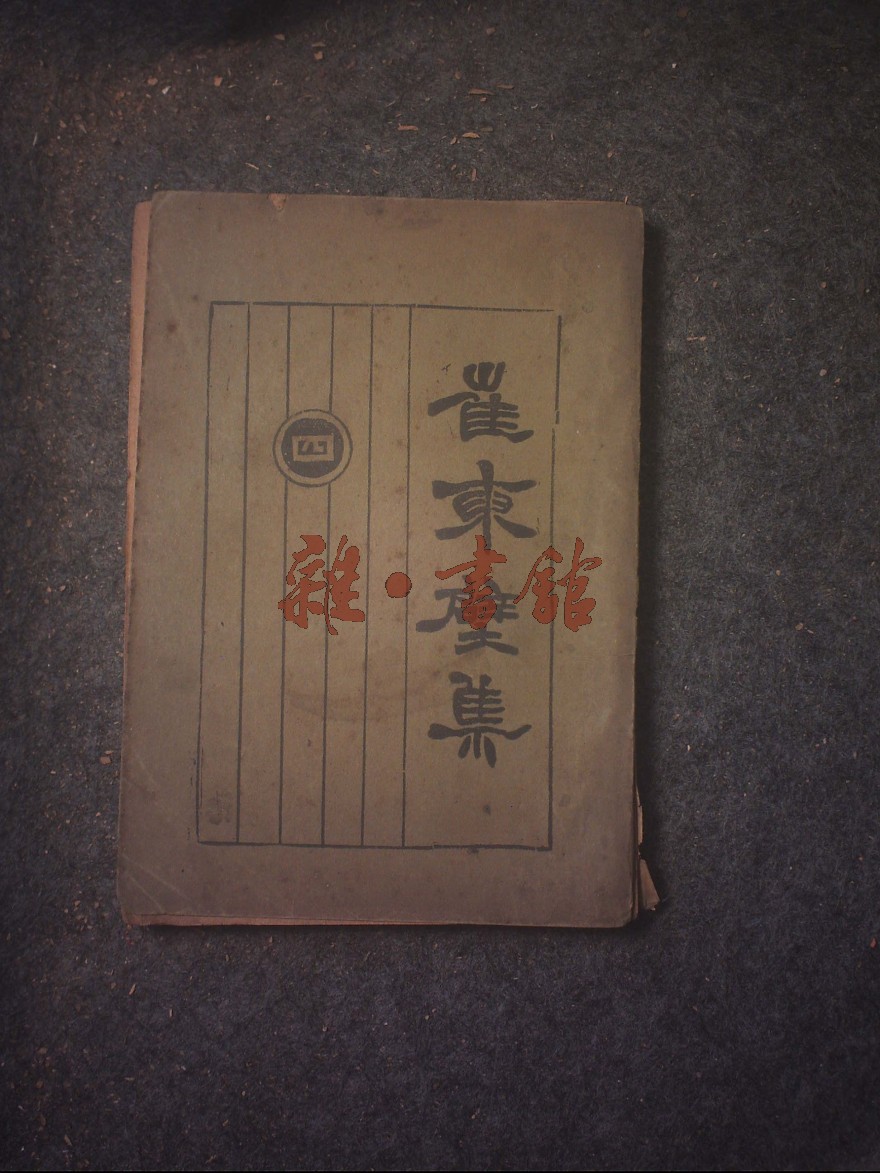 崔東壁集
四
雜·書館